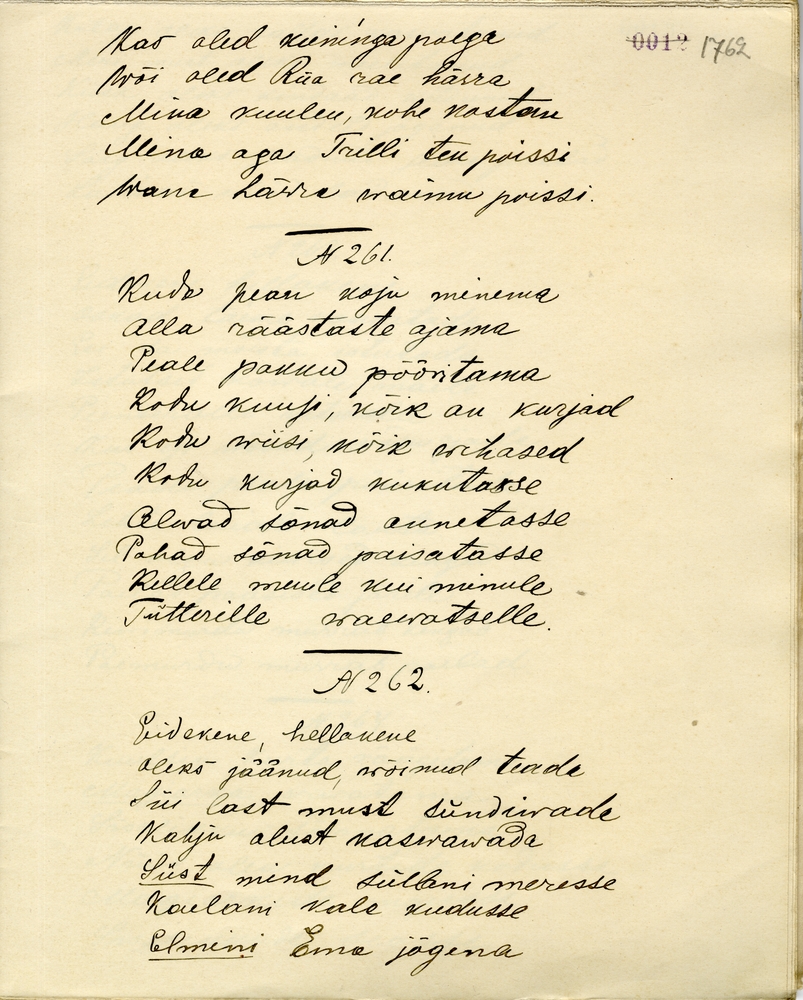 0012 1762
Kas oled kuninga poega
Wõi oled Riia rae härra
Mina kuulen, kohe kostan
Mina aga Trilli ten poissi
Wana härra waimu poissi.
N 261.
Kudo pean koju minema
Alla räästaste ajama
Peale pakku pööritama
Kodu kuusi, kõik on kurjad
Kodu wiisi, kõik wihased
Kodu kurjad kukutasse
Alwad sõnad annetasse
Pahad sõnad paisatasse
Kellele muule kui minule
Tütterille waewatselle.
N 262.
Eidekene, hellakene
oleks jäänud, wõinud teada
Süi last must sündiwada
Kahju alust kaswawada
Süst mind süllani meresse
Kaelani kala kudusse
Elmeni Ema jõgena